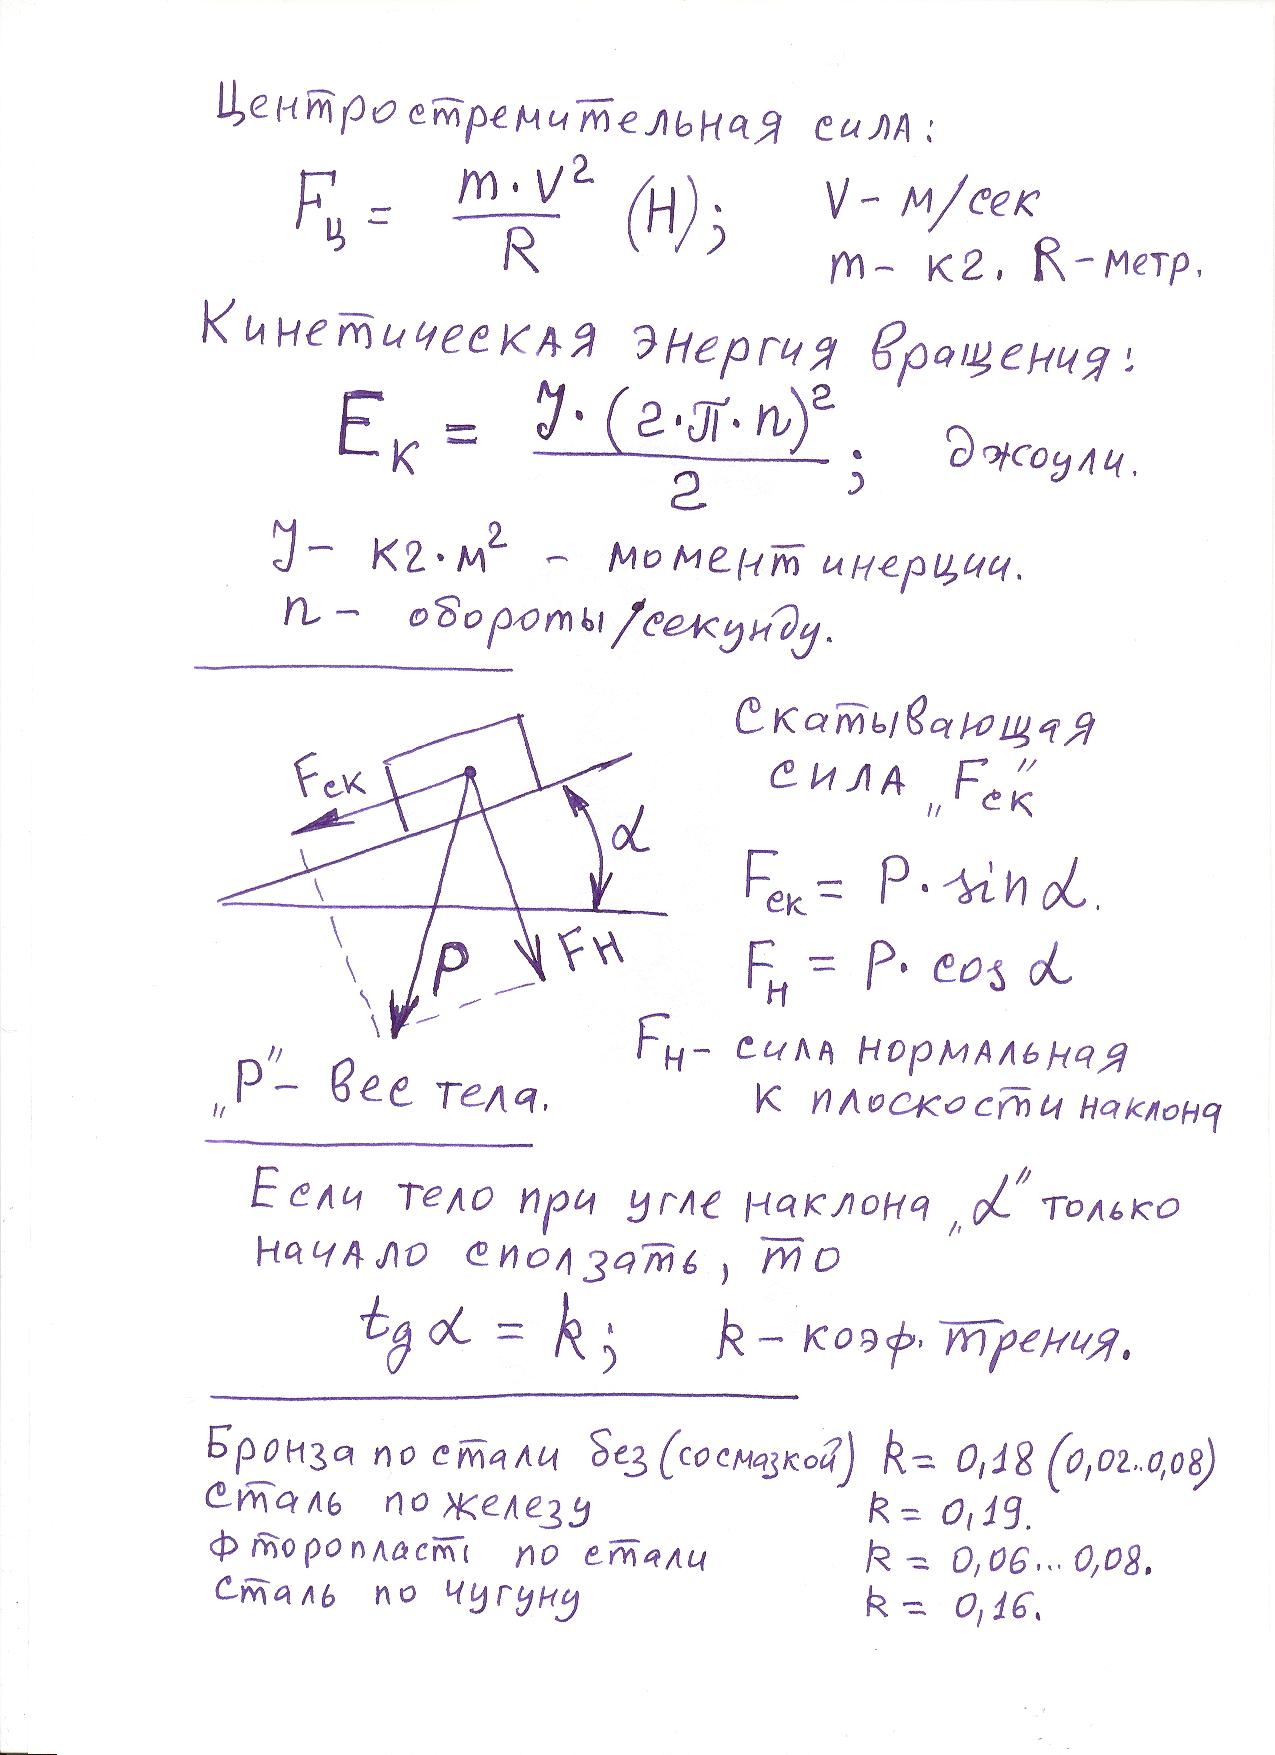 Центростремительная сила:
Fц = m·v²/R (Н); V – м/сек
m – кг. R – метр.
Кинетическая энергия вращения:
Eк = J·(2·π·n)²/2; джоули.
J – кг·м² – момент инерции.
n – обороты/секунду.
Скатывающая
сила „Fск"
Fск
α
Fск = P·sin α.
P
Fн
Fн = P·cos α
„P" – вес тела.
Fн – сила нормальная
к плоскости наклона
Если тело при угле наклона „α" только
начало сползать, то
tg α = k; k – коэф. трения.
Бронза по стали без (со смазкой) k = 0,18 (0,02..0,08)
Сталь по железу k = 0,19.
Фторопласт по стали k = 0,06...0,08.
Сталь по чугуну k = 0,16.